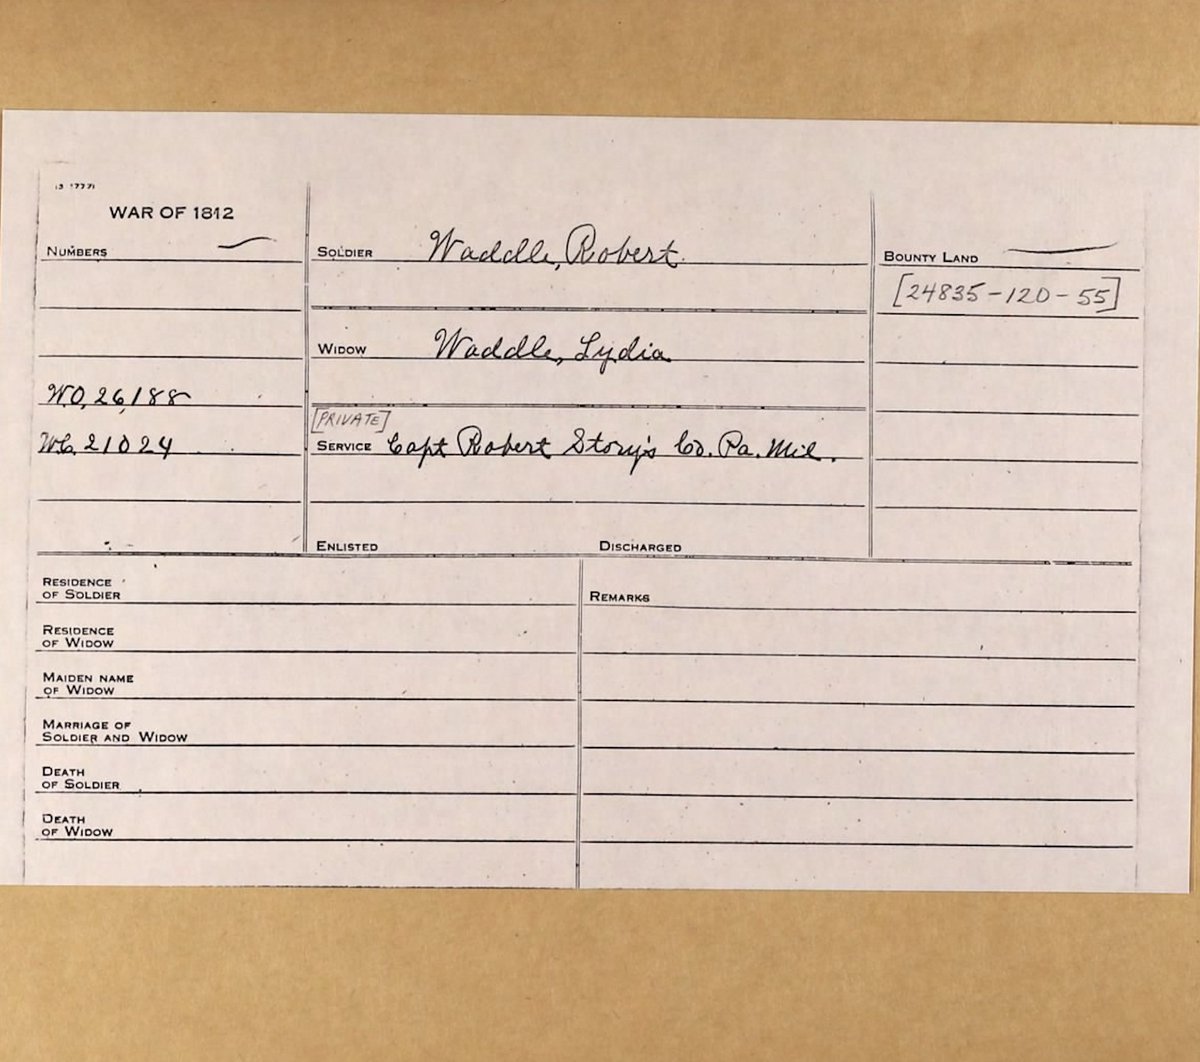 WAR OF 1812
NUMBERS
SOLDIER Waddle, Robert
BOUNTY LAND
[24835-120-55]
WIDOW Waddle, Lydia
W.O. 26,188
[PRIVATE]
W.C. 21024
SERVICE Capt Robert Story's Co. Pa. Mil.
ENLISTED DISCHARGED
RESIDENCE
OF SOLDIER
REMARKS
RESIDENCE
OF WIDOW
MAIDEN NAME
OF WIDOW
MARRIAGE OF
SOLDIER AND WIDOW
DEATH
OF SOLDIER
DEATH
OF WIDOW